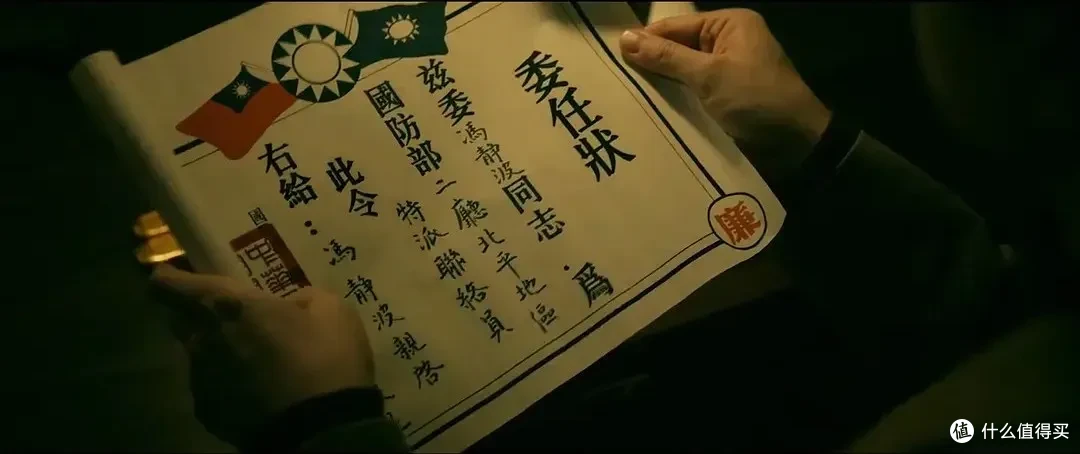 委任狀
茲委馮靜波同志·爲
國防部二廳北平地區
特派聯絡員
此令
右給：馮靜波親啓
國
廉
值 什么值得买